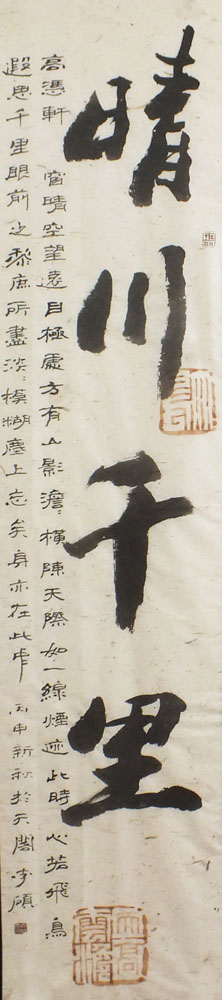 晴川千里
高憑軒窗晴空望遠目極處方有山影澹澹橫陳天際如一線煙迹此時心若飛鳥
遐思千里眼前之黎庶所盡淡淡模糊塵上忘矣身亦在此中 丙申新秋於天閣李碩